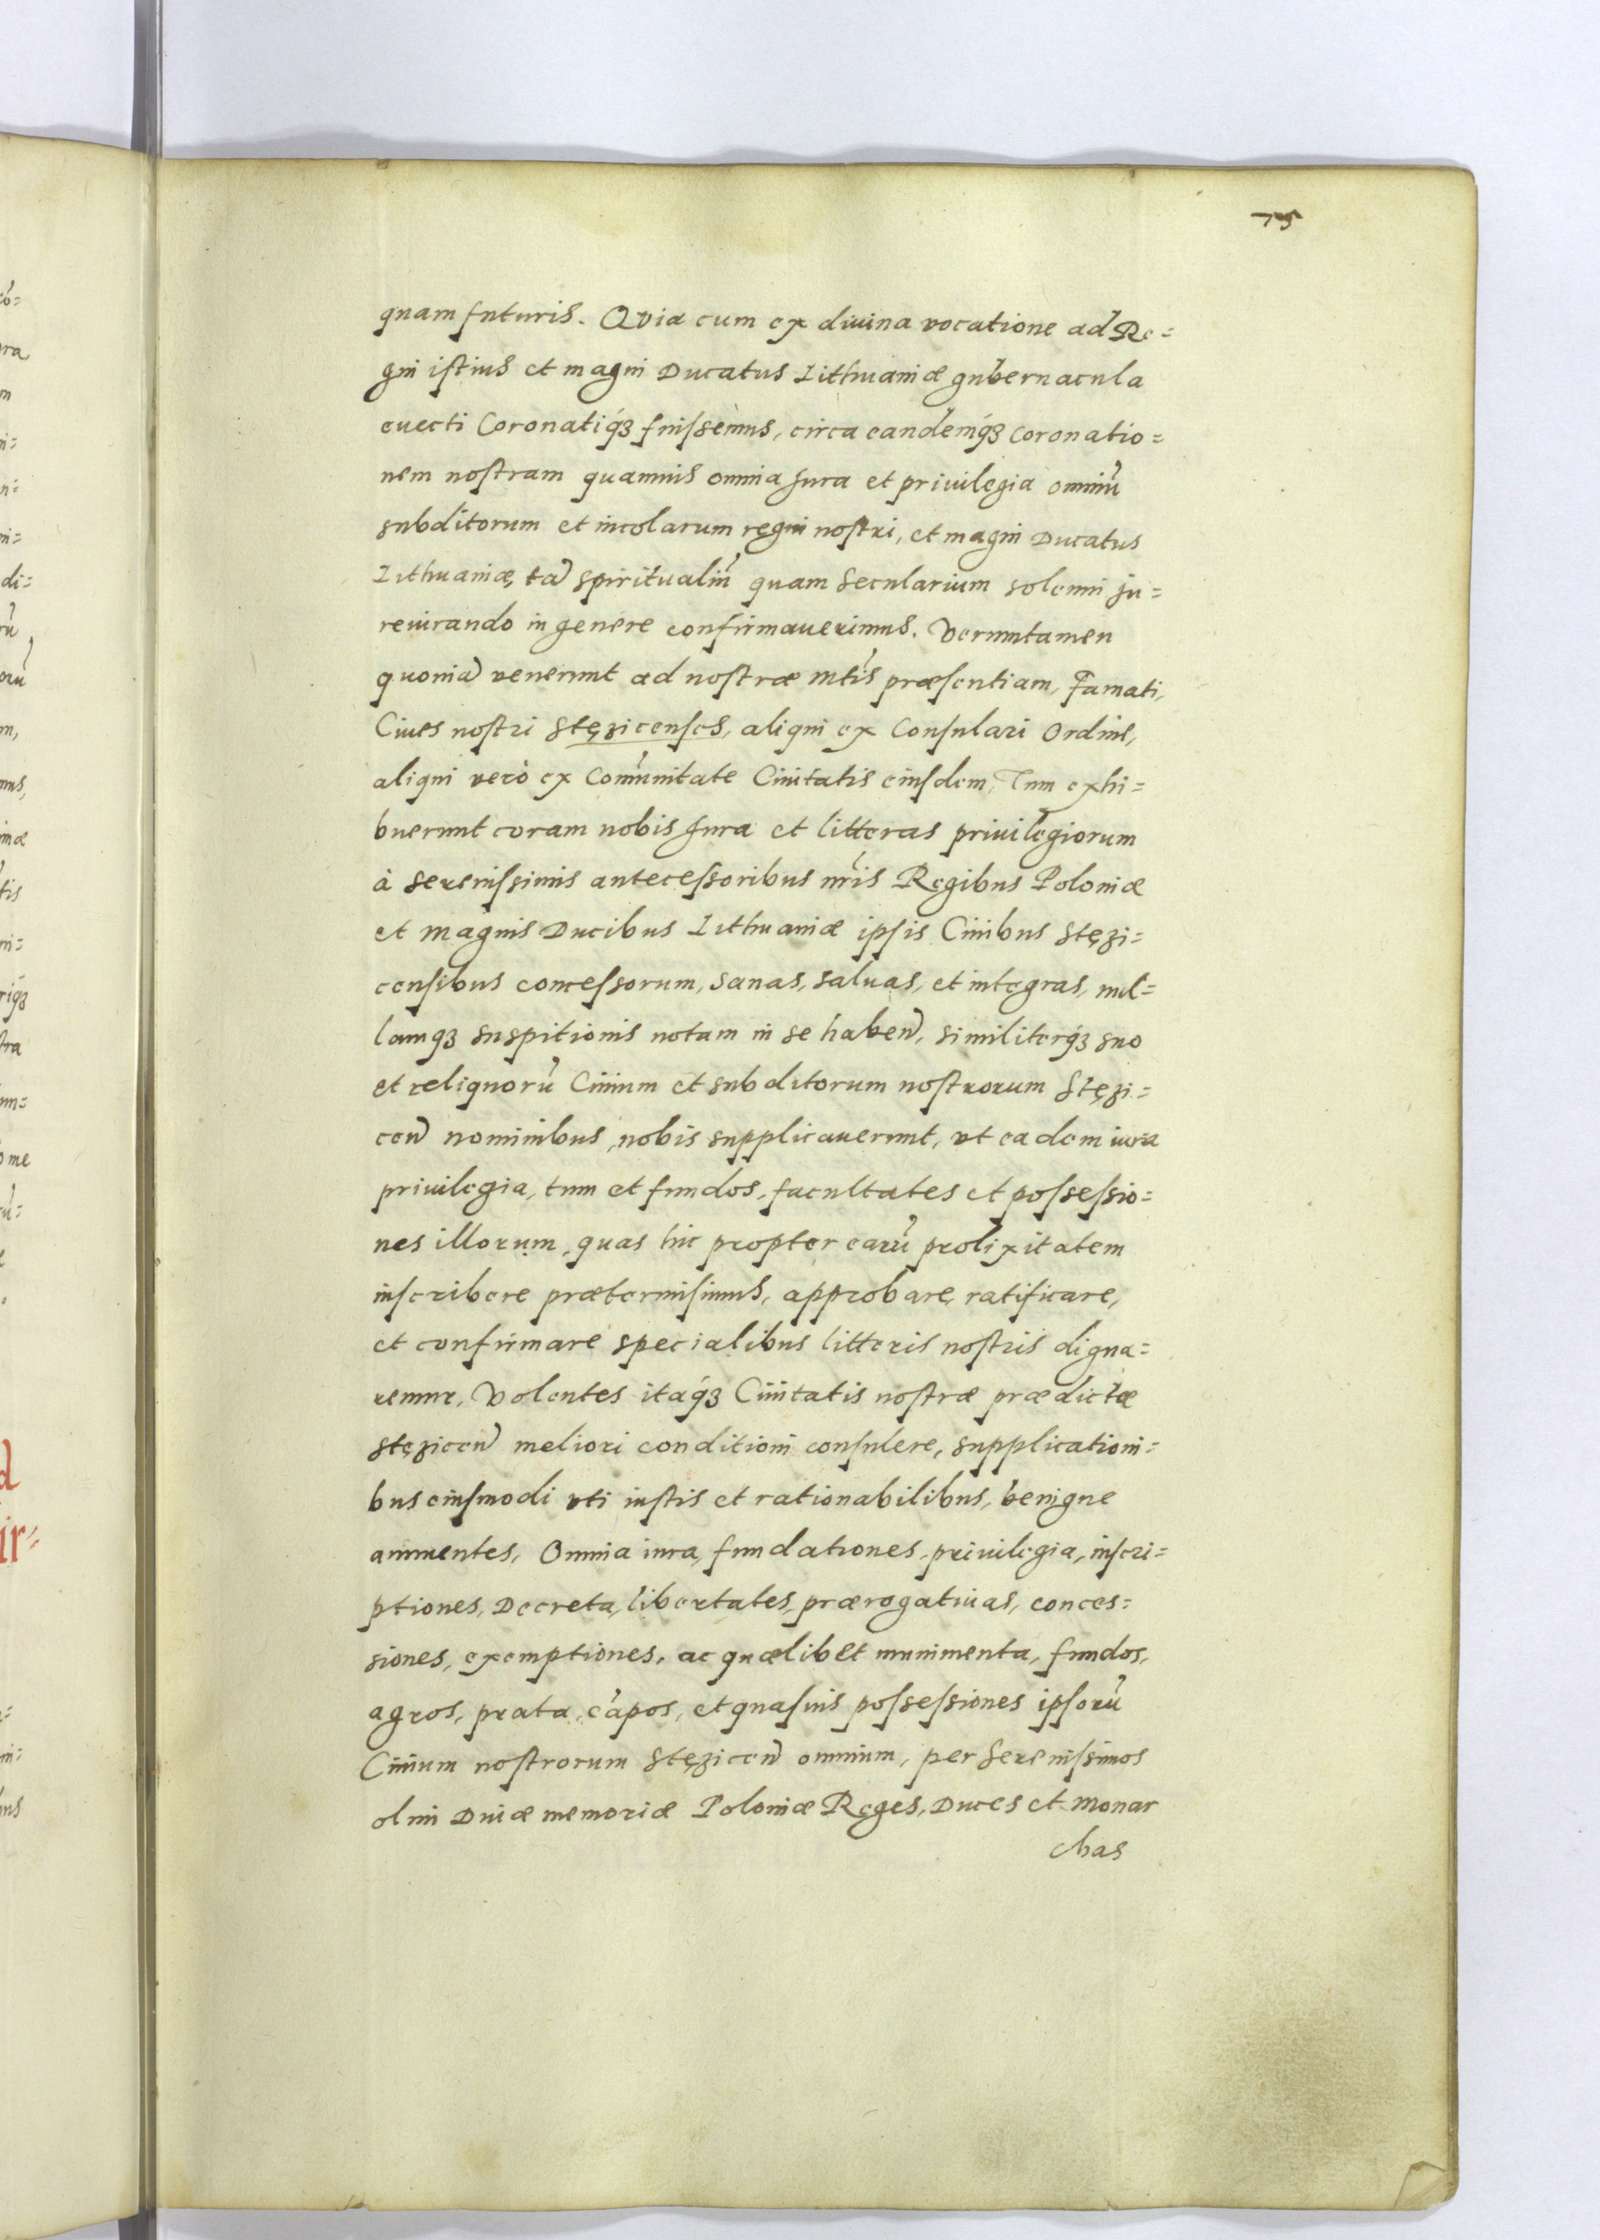 75
quam futuris. Qvia cum ex diuina vocatione ad Re=
gni istius et magni Ducatus Lithuaniæ gubernacula
euecti Coronatiq́ꝫ fuissemus, circa eandemq́ꝫ coronatio=
nem nostram quamuis omnia Jura et priuilegia omniũ
subditorum et incolarum regni nostri, et magni Ducatus
Lithuaniæ, tã spiritualiũ quam secularium solenni ju=
reiurando in genere confirmauerimus. Veruntamen
quoniã venerunt ad nostræ Mtis præsentiam, Famati,
Ciues nostri Stęzicenses, aliqui ex Consulari Ordine,
aliqui verò ex Comũnitate Ciuitatis eiusdem, Tum exhi=
buerunt coram nobis Jura et litteras priuilegiorum
à serenissimis antecessoribus nr̃is Regibus Poloniæ
et Magnis Ducibus Lithuaniæ ipsis Ciuibus Stęzi=
censibus concessorum, sanas, saluas, et integras, nul=
lamq́ꝫ suspitionis notam in se habeñ, similiterq́ꝫ suo
et reliquorũ Ciuium et subditorum nostrorum Stęzi=
ceñ nominibus, nobis supplicauerunt, vt eadem iura
priuilegia, tum et fundos, facultates et possessio=
nes illorum, quas hic propter earũ prolixitatem
inscribere prætermisimus, approbare, ratificare,
et confirmare specialibus litteris nostris digna=
remur, Volentes itaq́ꝫ Ciuitatis nostræ prædictæ
stęziceñ meliori conditioni consulere, supplicationi=
bus eiusmodi vti iustis et rationabilibus, benigne
annuentes, Omnia iura, fundationes, priuilegia, inscri=
ptiones, Decreta, libertates, prærogatiuas, conces=
siones, exemptiones, ac quælibet munimenta, fundos,
agros, prata, cãpos, et quasuis possessiones ipsorũ
Ciuium nostrorum Stęziceñ omnium, per Serenissimos
olim Diuæ memoriæ Poloniæ Reges, Duces et Monar
chas